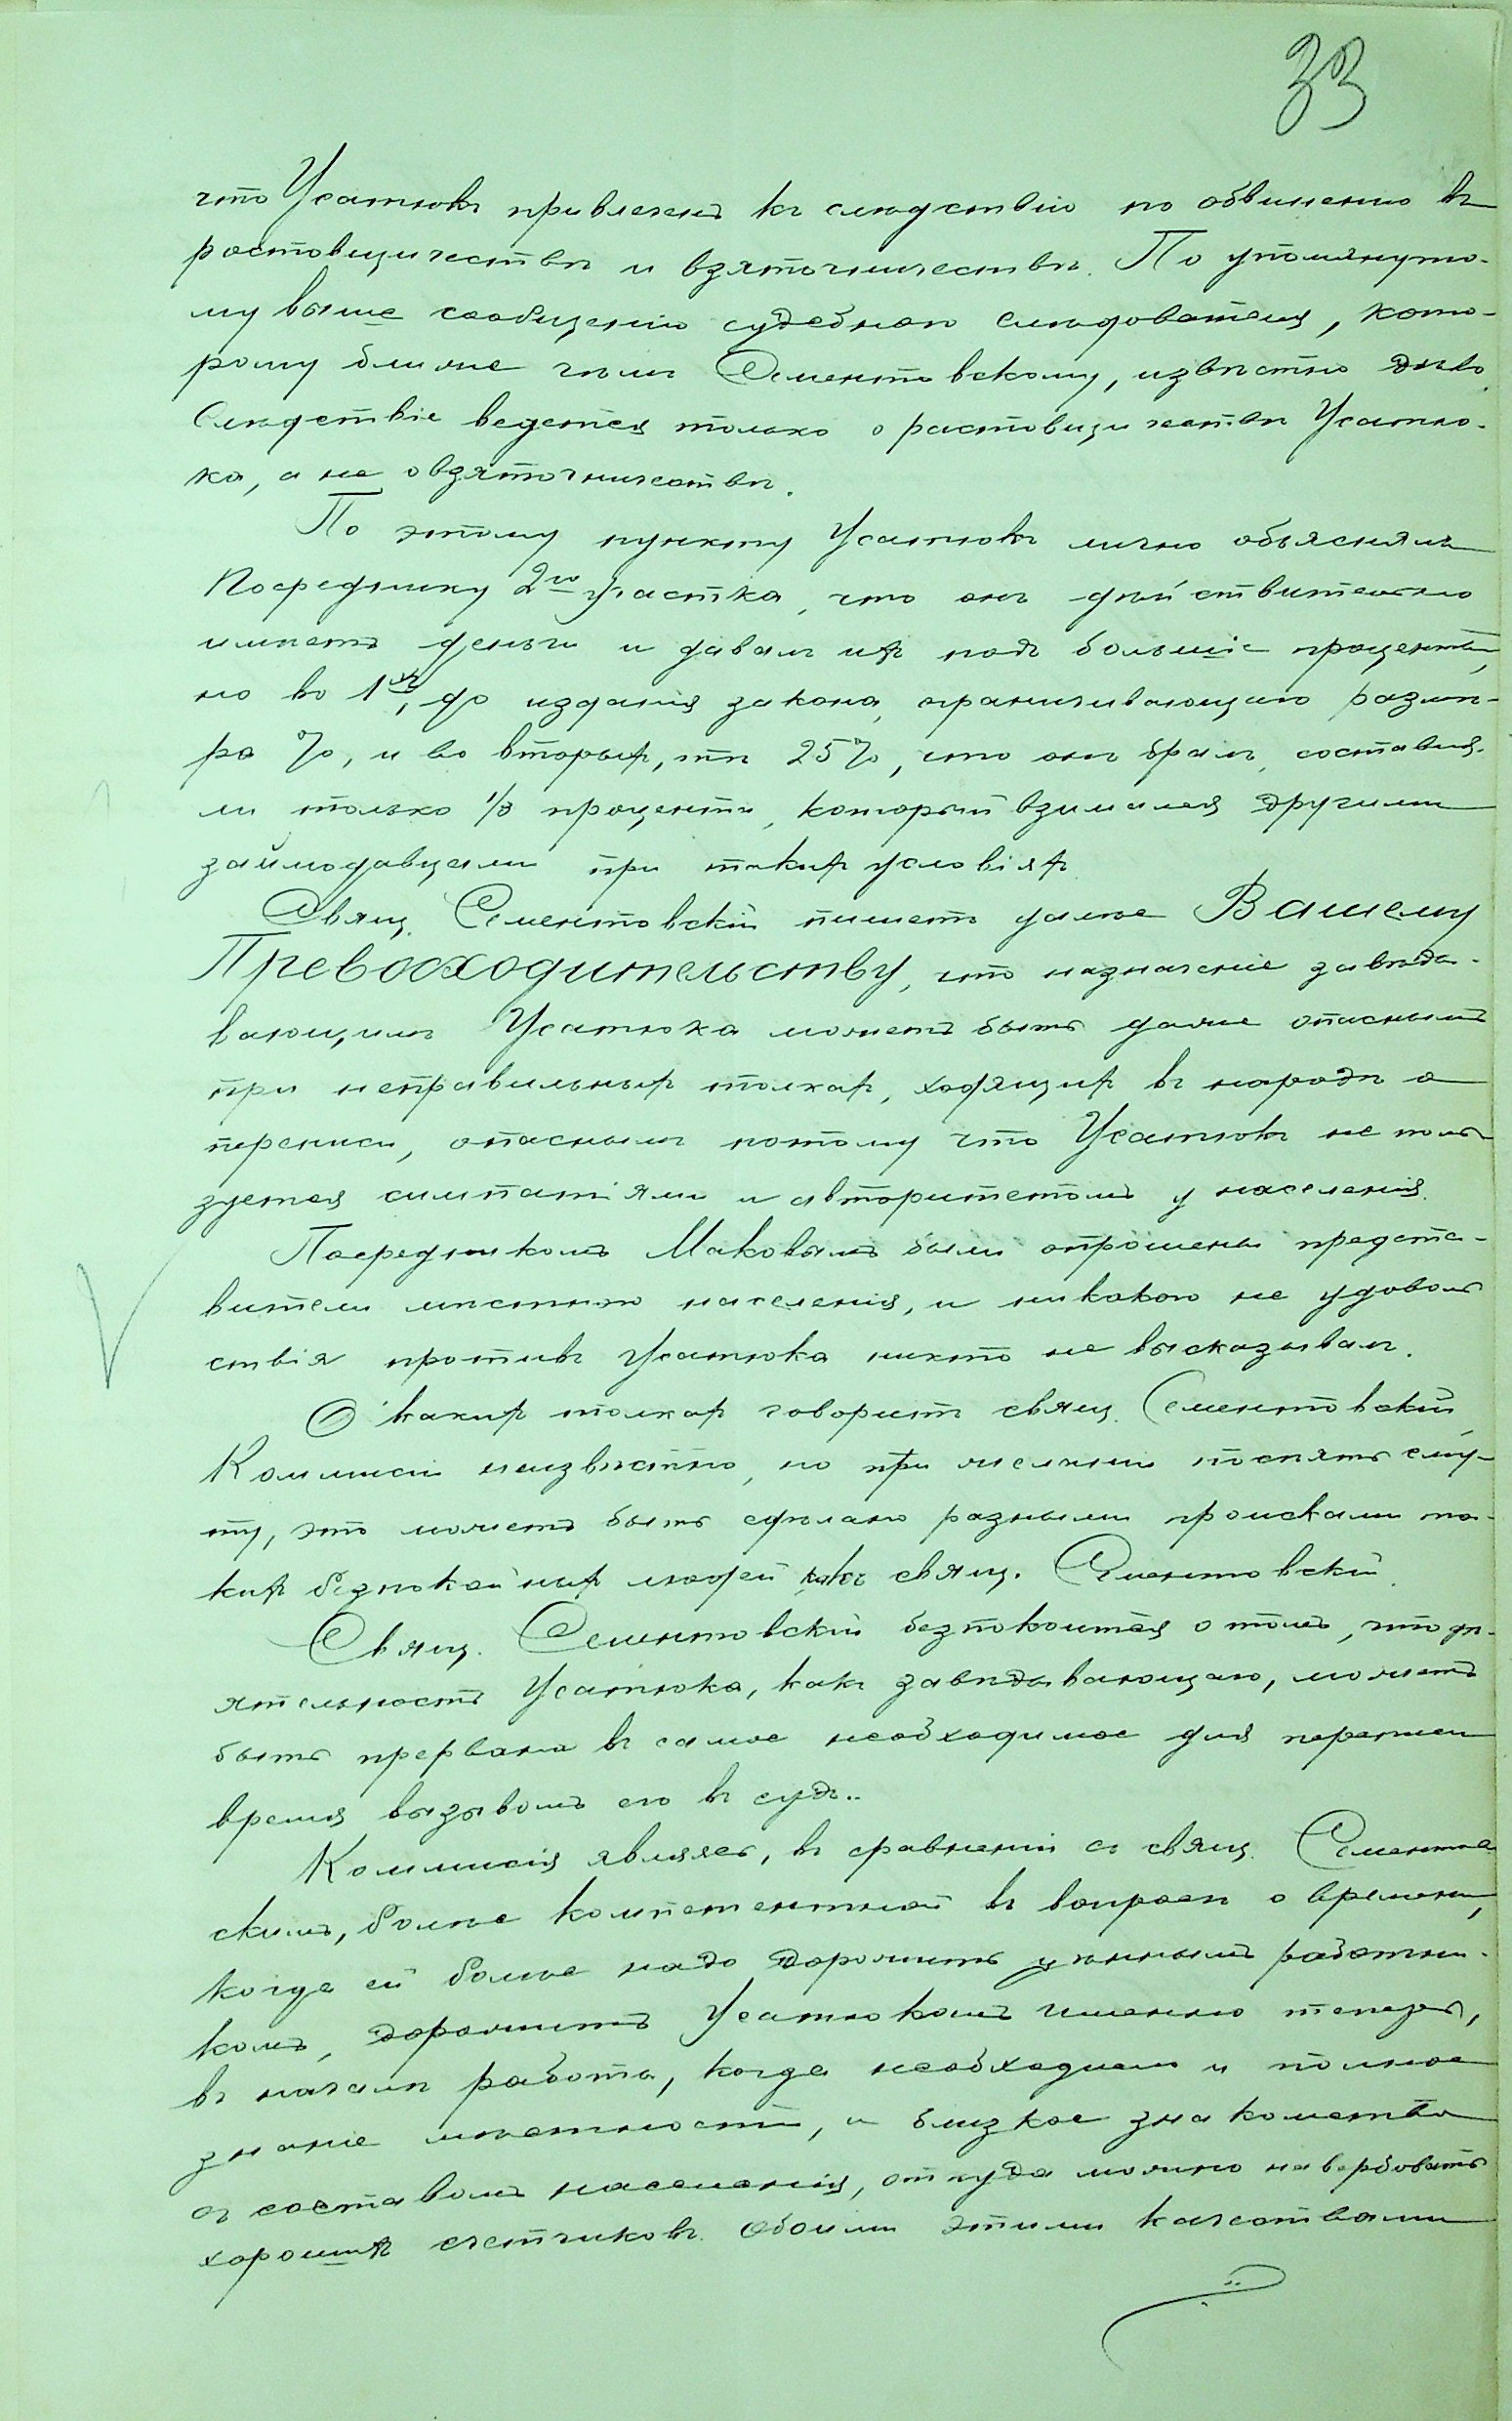 33
что Усатюкъ привлеченъ къ слѣдствію по обвиненію въ
ростовщичествѣ и взяточничествѣ. По упомянуто-
му выше сообщенію судебнаго слѣдователя, кото-
рому ближе чѣмъ Сементовскому, извѣстно дѣло,
слѣдствіе ведется только о растовщичествѣ Усатю-
ка, а не о взяточничествѣ.
По этому пункту Усатюкъ лично объяснялъ
Посреднику 2го участка, что онъ дѣйствительно
имѣетъ деньги и давалъ ихъ подъ большіе проценты,
но во 1хъ, до изданія закона, ограничивающаго размѣ-
ра %, и во вторыхъ, тѣ 25%, что онъ бралъ, составля-
ли только 1/3 процента, который взимался другими
займодавцами при такихъ условіяхъ
Свящ. Сементовскій пишетъ далѣе Вашему
Превосходительству, что назначеніе завѣды-
вающимъ Усатюка можетъ быть даже опаснымъ
при неправильныхъ толкахъ, ходящихъ въ народѣ о
переписи, опаснымъ потому что Усатюкъ не поль-
зуется симпатіями и авторитетомъ у населенія.
Посредникомъ Маковымъ были опрошены предста-
вители мѣстнаго населенія, и никакого не удоволь
ствія противъ Усатюка никто не высказывалъ.
О какихъ толкахъ говоритъ свящ. Сементовскій
Коммисіи неизвѣстно, но при желаніи посѣять сму-
ту, это можетъ быть сдѣлано разными происками та-
кихъ безпокойныхъ людей какъ свящ. Сементовскій
Свящ. Сементовскій безпокоится о томъ, что дѣ-
ятельность Усатюка, какъ завѣдывающаго, можетъ
быть прервана въ самое необходимое для переписи
время вызывомъ его въ судъ..
Коммисія являясь, въ сравненіи съ свящ. Сементов
скимъ, болѣе компетентной въ вопросѣ о времени,
когда ей болѣе надо дорожить цѣннымъ работни-
комъ, дорожитъ Усатюкомъ именно теперь,
въ началѣ работы, когда необходимо и полное
знаніе мѣстности, и близкое знакомство
съ составомъ населенія, откуда можно навербовать
хорошихъ счетчиковъ. Обоими этими качествами